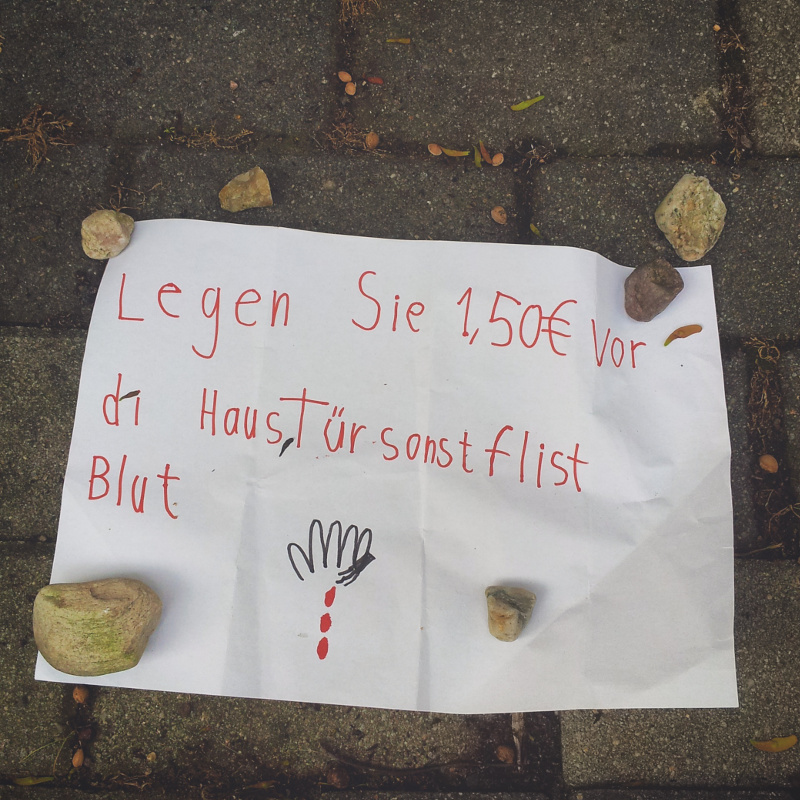 Legen Sie 1,50€ Vor
di HausTür sonst flist
Blut